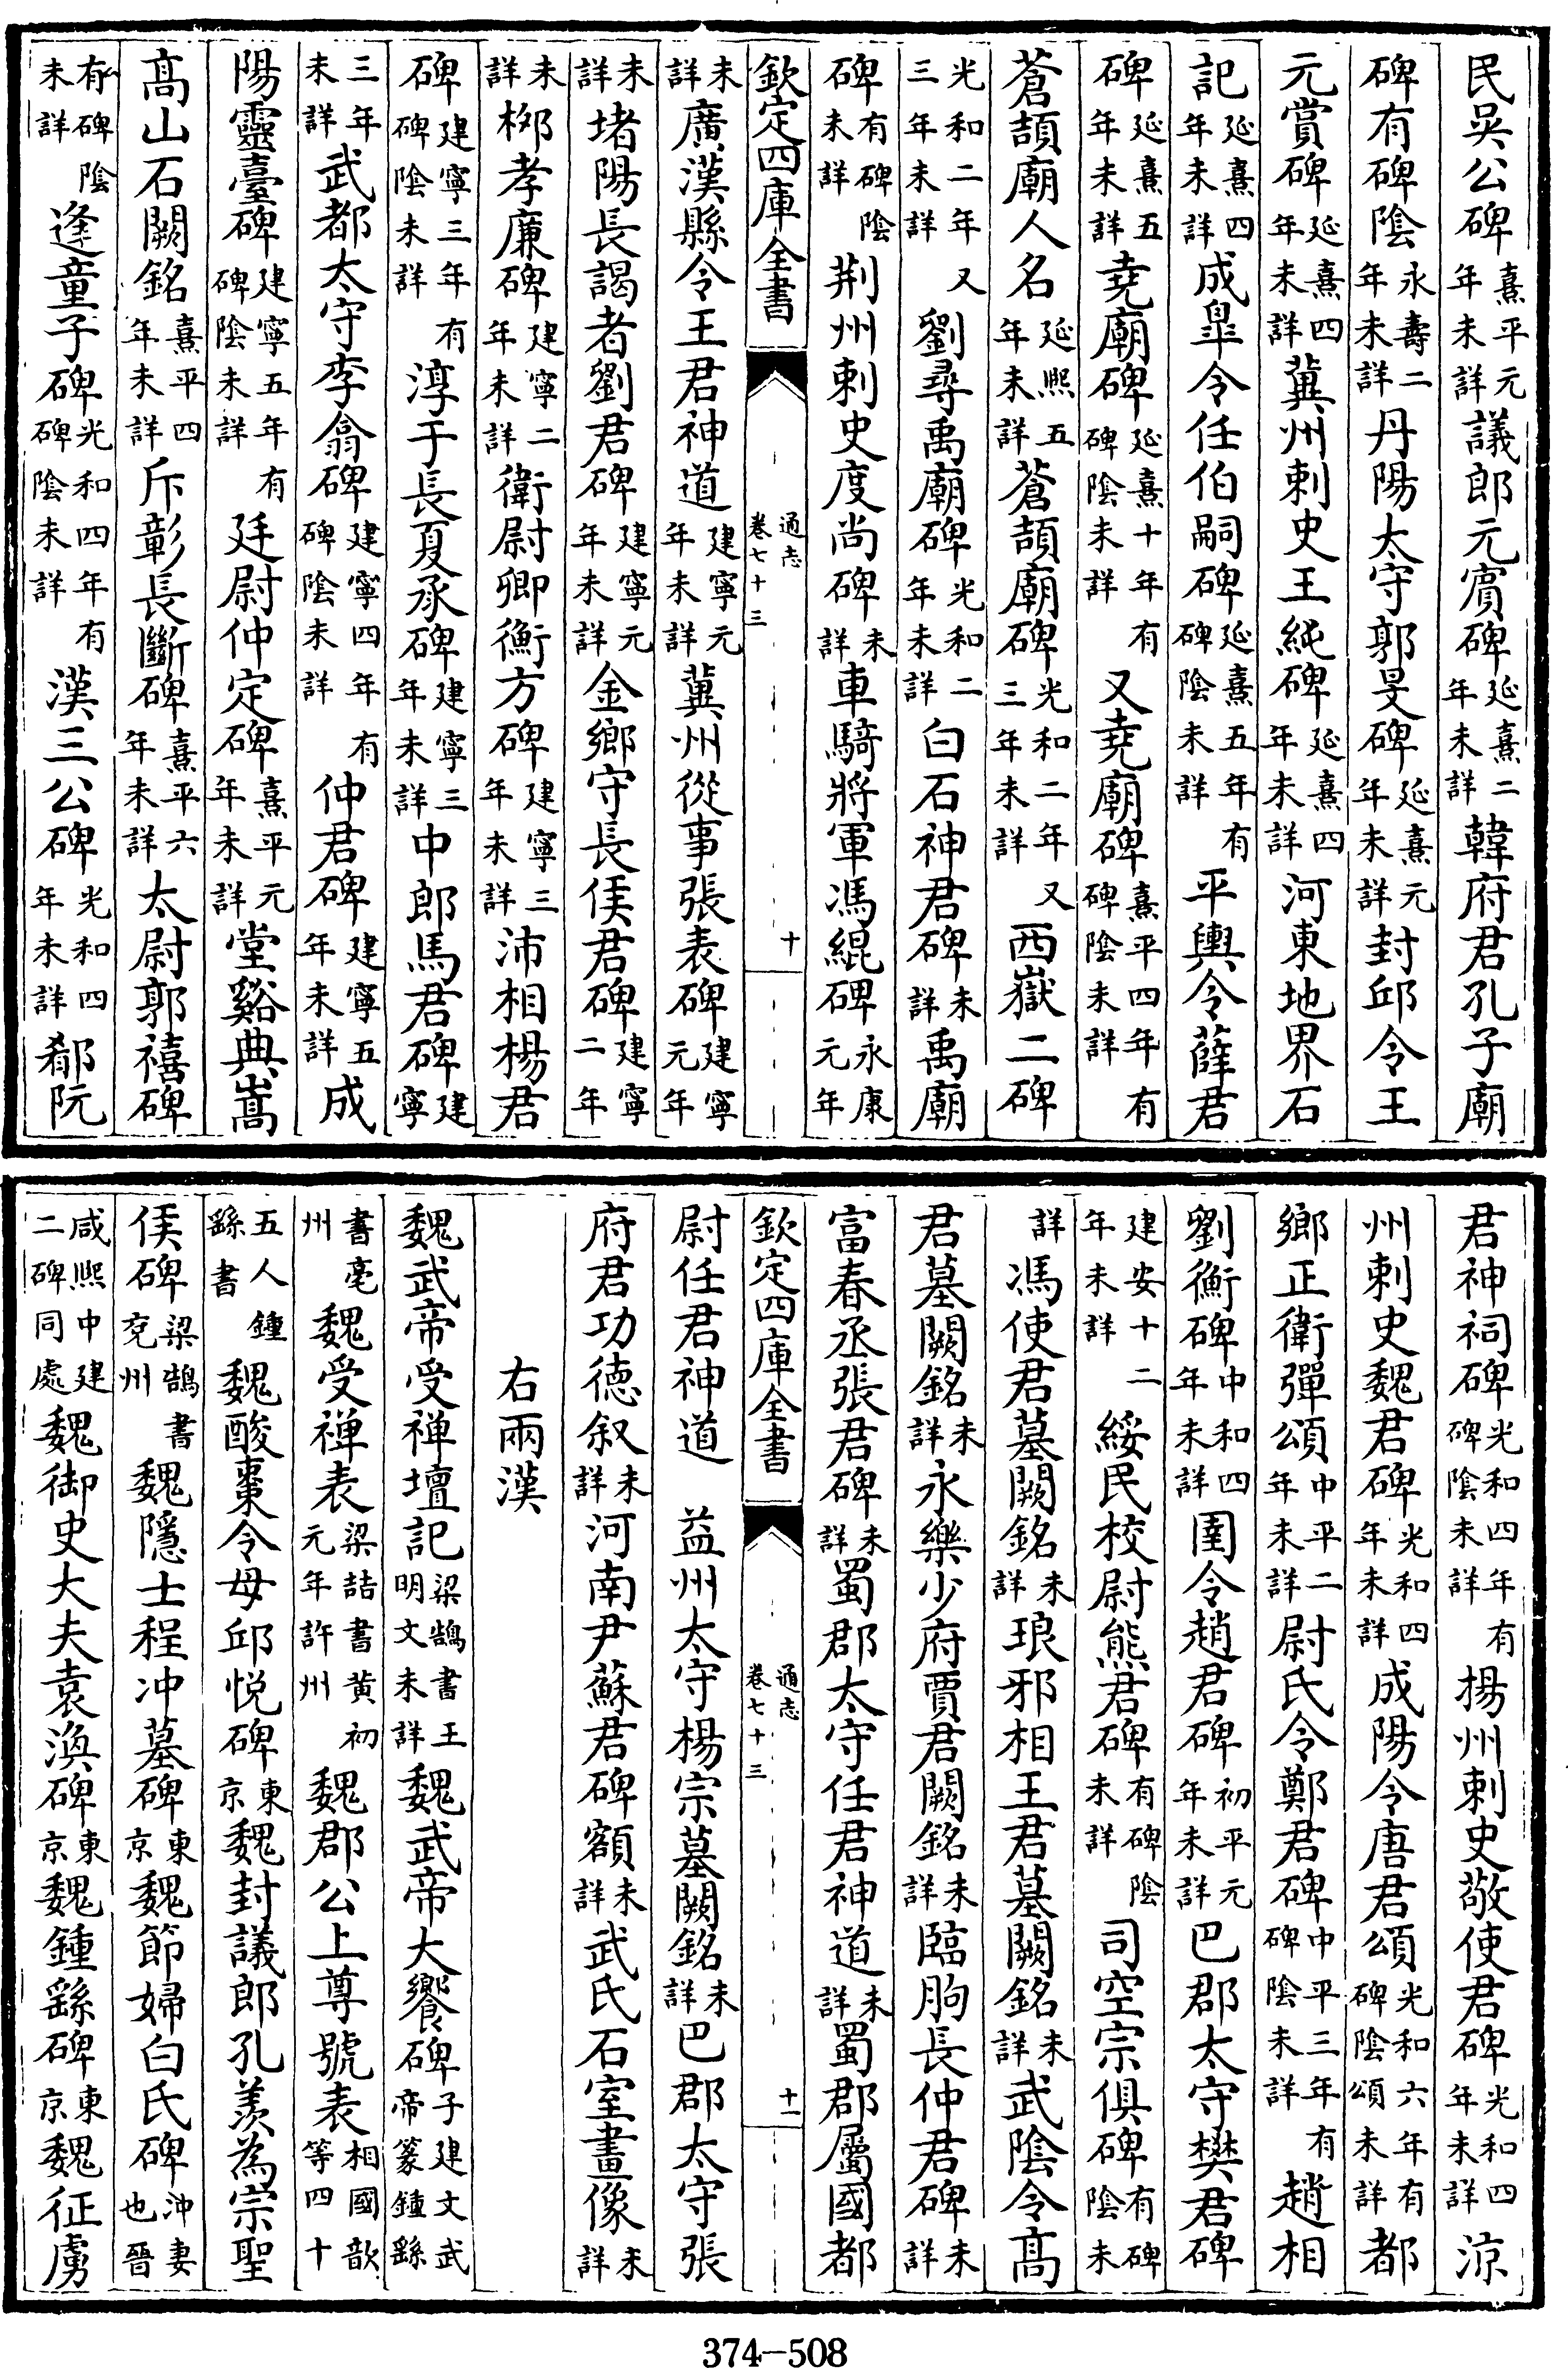 民吳公碑熹平元年未詳議郎元賓碑延熹二年未詳韓府君孔子廟
碑有碑陰永壽二年未詳丹陽太守郭旻碑延熹元年未詳封邱令王
元賞碑延熹四年未詳冀州刺史王純碑延熹四年未詳河東地界石
記延熹四年未詳成臯令任伯嗣碑延熹五年有碑陰未詳平輿令薛君
碑延熹五年未詳堯廟碑延熹十年有碑陰未詳又堯廟碑熹平四年有碑陰未詳
蒼頡廟人名延熙五年未詳蒼頡廟碑光和二年又三年未詳西嶽二碑
光和二年又三年未詳劉尋禹廟碑光和二年未詳白石神君碑未詳禹廟
碑有碑陰未詳荆州刺史度尚碑未詳車騎將軍馮緄碑永康元年
欽定四庫全書 通志 卷七十三 十
未詳廣漢縣令王君神道建寧元年未詳冀州從事張表碑建寧元年
未詳堵陽長謁者劉君碑建寧元年未詳金鄉守長侯君碑建寧二年
未詳桞孝廉碑建寧二年未詳衛尉卿衡方碑建寧三年未詳沛相楊君
碑建寧三年有碑陰未詳淳于長夏承碑建寧三年未詳中郎馬君碑建寧
三年未詳武都太守李翕碑建寧四年有碑陰未詳仲君碑建寧五年未詳成
陽靈臺碑建寧五年有碑陰未詳廷尉仲定碑熹平元年未詳堂谿典嵩
髙山石闕銘熹平四年未詳斥彰長斷碑熹平六年未詳太尉郭禧碑
有碑陰未詳逢童子碑光和四年有碑陰未詳漢三公碑光和四年未詳郗阮
君神祠碑光和四年有碑陰未詳楊州刺史敬使君碑光和四年未詳涼
州刺史魏君碑光和四年未詳成陽令唐君頌光和六年有碑陰頌未詳都
鄉正衛彈頌中平二年未詳尉氏令鄭君碑中平三年有碑陰未詳趙相
劉衡碑中和四年未詳圉令趙君碑初平元年未詳巴郡太守樊君碑
建安十二年未詳綏民校尉熊君碑有碑陰未詳司空宗俱碑有碑陰未
詳馮使君墓闕銘未詳琅邪相王君墓闕銘未詳武陰令髙
君墓闕銘未詳永樂少府賈君闕銘未詳臨朐長仲君碑未詳
富春丞張君碑未詳蜀郡太守任君神道未詳蜀郡屬國都
欽定四庫全書 通志 卷七十三 十一
尉任君神道 益州太守楊宗墓闕銘未詳巴郡太守張
府君功德叙未詳河南尹蘇君碑額未詳武氏石室畫像未詳
右兩漢
魏武帝受禅壇記梁鵠書王明文未詳魏武帝大饗碑子建文武帝篆鍾繇
書亳州魏受禅表梁詰書黄初元年許州魏郡公上尊號表相國歆等四十
五人鍾繇書魏酸棗令毋邱悦碑東京魏封議郎孔羨為宗聖
侯碑梁鵠書兖州魏隱士程冲墓碑東京魏節婦白氏碑沖妻也晉
咸熙中建二碑同處魏御史大夫袁渙碑東京魏鍾繇碑東京魏征虜
374-508